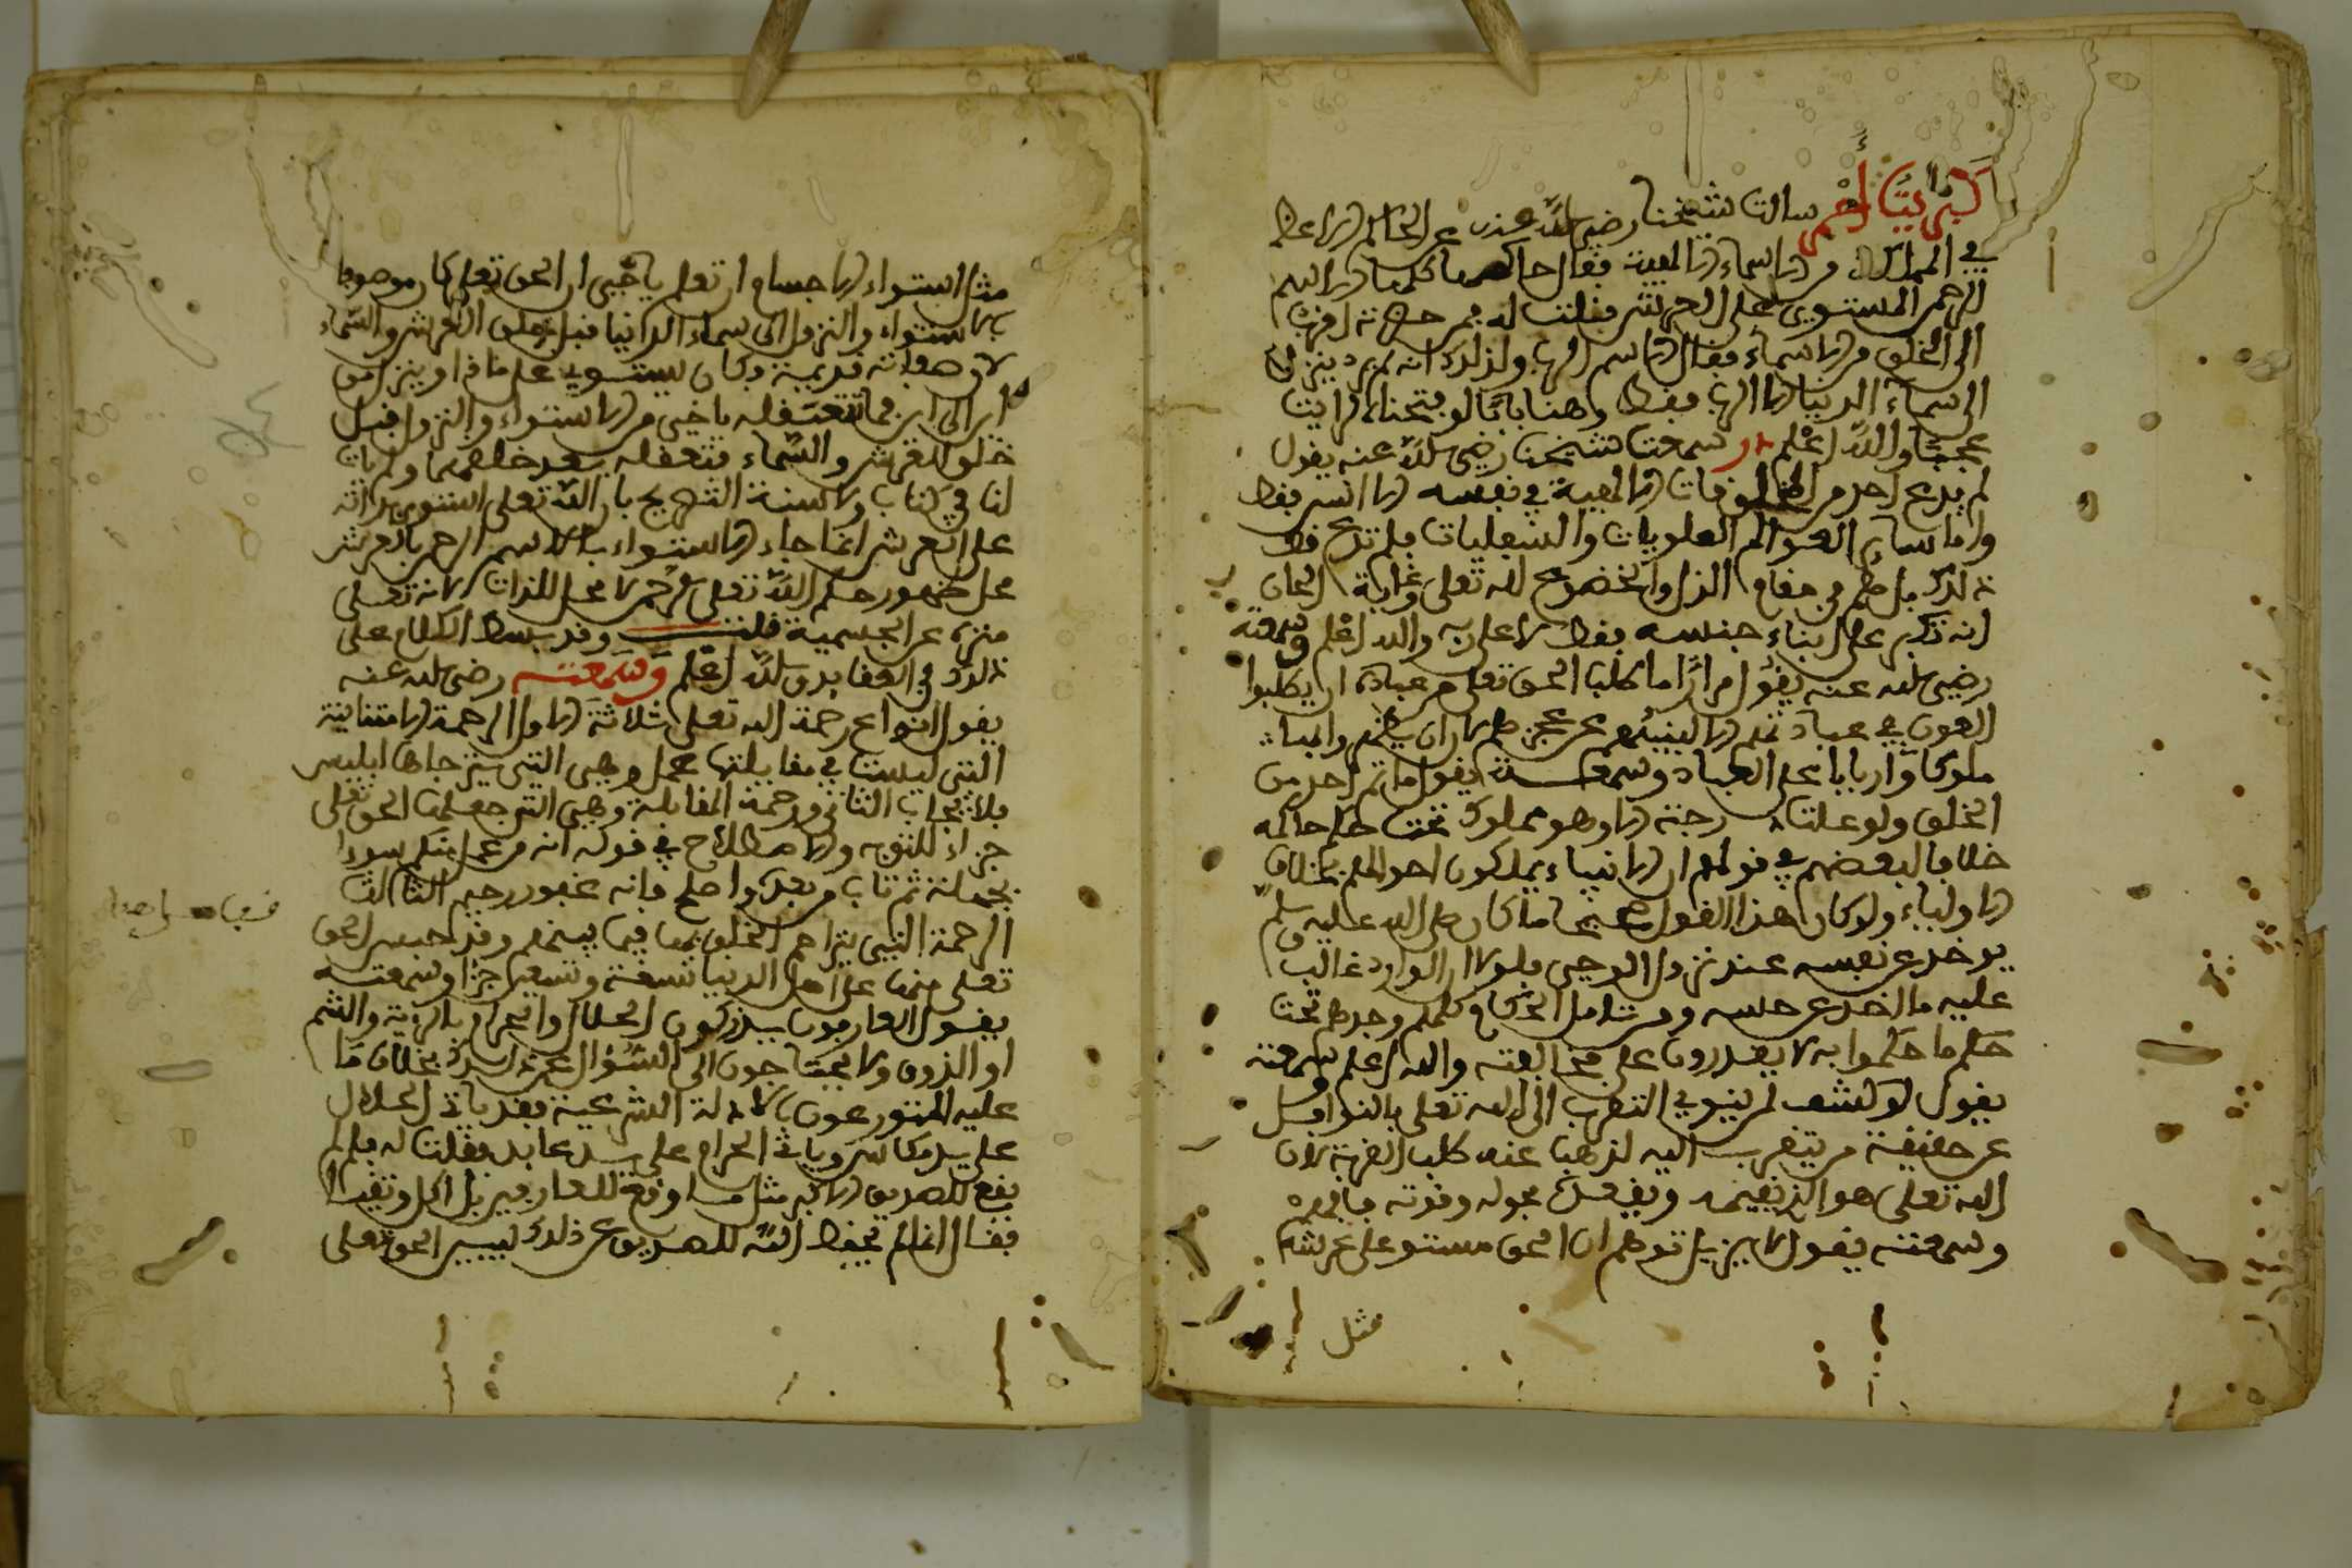 كبريت أحمر سالت شيخنا رضي الله عنه عن الحاكم الاعظم
في المملكة من الاسماء الالهية فقال حاكمها كلها الاسم
الرحمن المستوي على العرش فقلت له فمن حضرته اقرب
الى الخلق من الاسماء فقال الاسم الرب ولذلك انه لم يرد ينزل
الى سماء الدنيا الا الرب فقط وهنا بابا لو فتحناه لرايت
عجبا والله اعلم در سمعت شيخنا رضي الله عنه يقول
لم يدع احد من المخلوقات الالهية في نفسه الا الانس فقط
واما ساير العوالم العلويات والسفليات فلم تدع قط
ذلك بل هم في مقام الذل والخضوع لله تعلى وغاية الجان
انه تكبر على ابناء جنسه فقط لا على ربه والله اعلم وسمعته
رضي الله عنه يقول مرارا ما طلب الحق تعلى من عباده ان يطلبوا
العون في عبادتهم الا لينبئهم عن عجزهم لا ان يظنهم
ملوكا واربابا على العباد وسمعته يقول ما ثم احد من
الخلق ولو علت درجته الا وهو مملوك تحت حكم حاكمه
خلافا لبعضهم في قولهم ان الانبياء يملكون احوالهم بخلاف
الاولياء ولو كان هذا القول صحيحا ما كان صلى الله عليه وسلم
يوخذ عن نفسه عند نزول الوحي فلولا ان الوارد غالب
عليه ما اخذ عن حسه ومن تامل الحكام كلهم وجدهم تحت
حكم ما حكموا به لا يقدرون على مخالفته والله اعلم وسمعته
يقول لو كشف لمن ينوي التقرب الى الله تعلى بالنوافل
عن حقيقة من يتقرب اليه لذهب عنه طلب القربة لان
الله تعلى هو الذي يقيمه ويقعده بحوله وقوته فافهم
وسمعته يقول لا يزيل توهم ان الحق مستو على عرشه
مثل
مثل استواء الاجسام ان تعلم يا خي ان الحق تعلى كان موصوفا
بالاستواء والنزول الى سماء الدنيا قبل خلق العرش والسماء
لان صفاته قديمة وكان يستوي على ماذا وينزل من
اين الى اين فما تتعقله ياخي من الاستواء والنزول قبل
خلق العرش والسماء فتعقله بعد خلقهما ولم يات
لنا في كتاب ولا سنة التصريح بان الله تعلى استوى بذاته
على العرش انما جاء الاستواء بالاسم الرحمن فالعرش
محل ظهور حكم الله تعلى الرحمن لا محل للذات لانه تعلى
منزه عن الجسمية قلت وقد بسط الكلام على
ذلك في العقايد والله اعلم وسمعته رضي الله عنه
يقول انواع رحمة الله تعلى ثلاثة الاول الرحمة الامتنانية
التي ليست في مقابلتها عمل وهي التي يترجاها ابليس
فلا تجاب الثاني ورحمة المقابلة وهي التي جعلها الحق تعلى
جزاء للتوبة والاصلاح في قوله انه من عمل منكم سوءا
بجهالة ثم تاب من بعده واصلح فانه غفور رحيم الثالث
الرحمة التي يتراحم الخلق بها فيما بينهم وقد حبس الحق
تعلى منها على اهل الدنيا تسعة وتسعين جزا وسمعته
يقول العارفون يدركون الحلال والحرام بالرؤية والشم
او الذوق ولا يحتاجون الى السؤال عن ذلك بخلاف ما
عليه المتورعون بالادلة الشرعية فقد ياتي الحلال
على يد مكاس وياتي الحرام على يد عابد فقلت له فلم لم
يقع للصديق الاكبر مثل ما وقع للعارفين بل اكل وتقيا
فقال انما لم يحفظ الله للصديق عن ذلك ليبين الحق تعلى